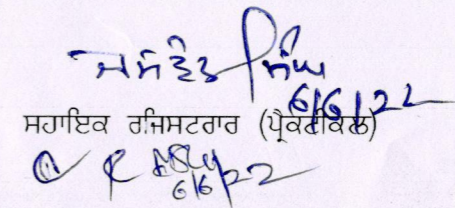 ਜਸਵੰਤ ਸਿੰਘ
6/6/22
ਸਹਾਇਕ ਰਜਿਸਟਰਾਰ (ਪ੍ਰੈਕਟੀਕਲ)
6/6/22